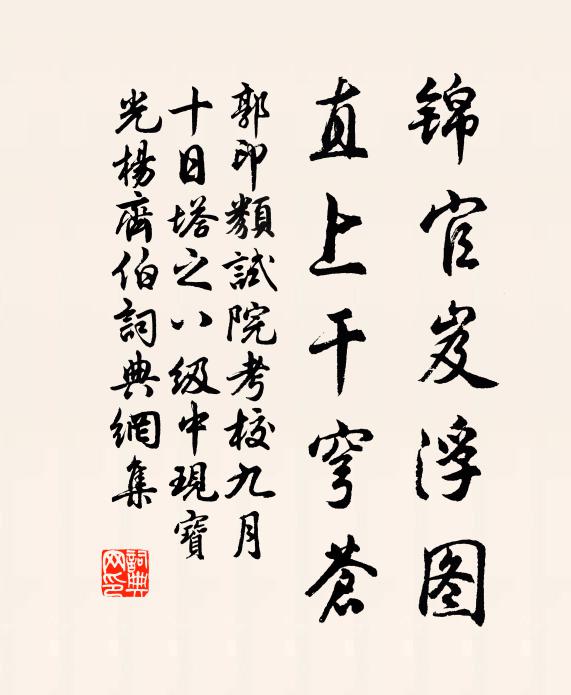 锦官岌浮图
直上干穹苍
郭印類試院考校九月
十日塔之八级中現寶
光楊齊伯詞典網集
詞典网印